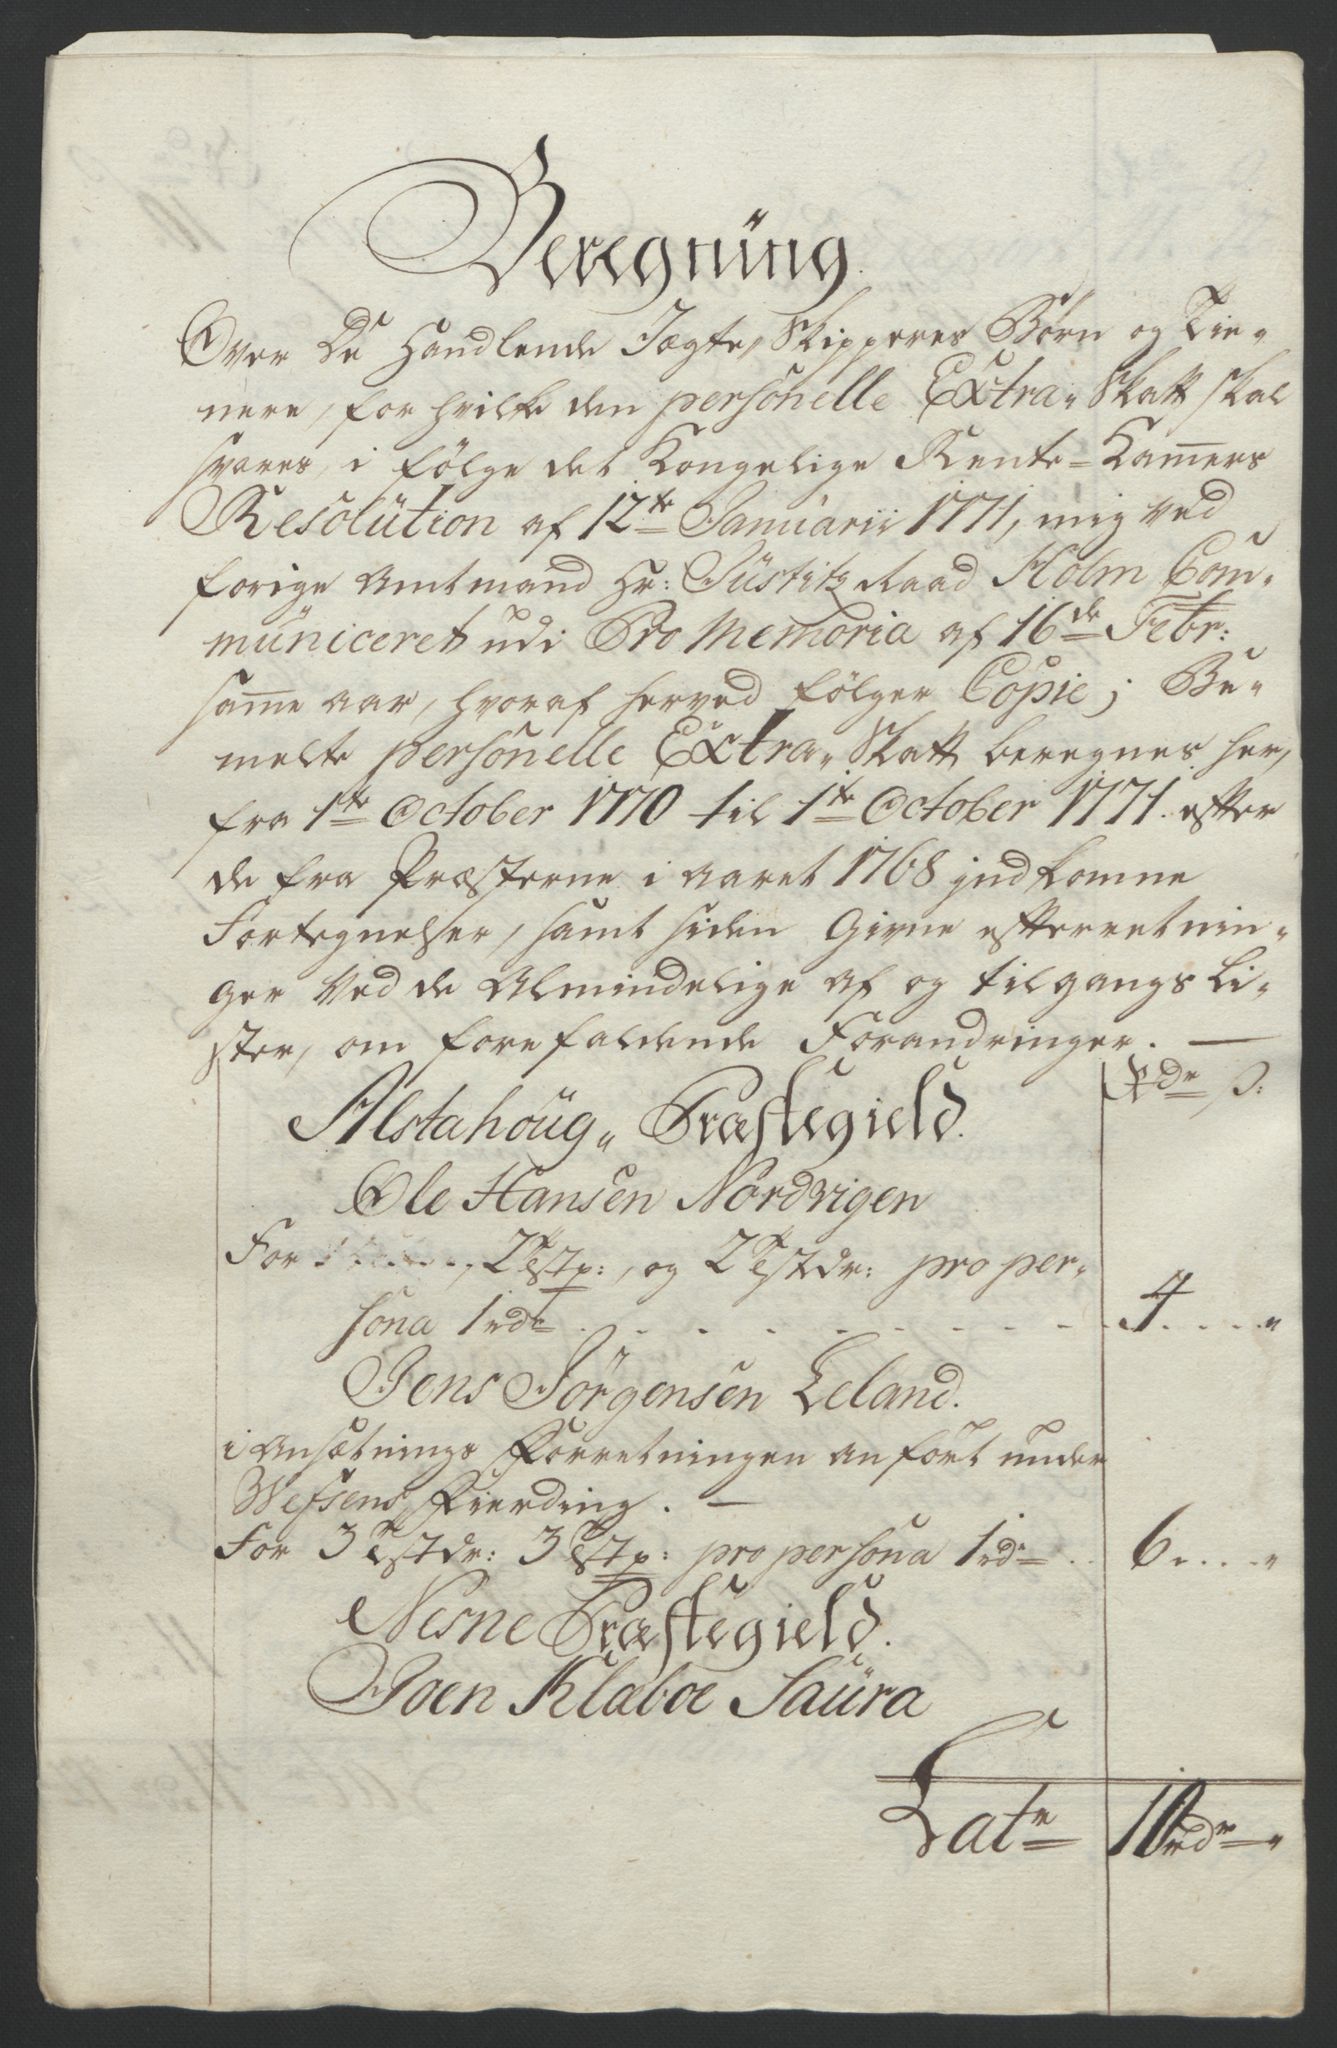 Beregning
Over De Handlende Jægte, Skipperes Børn og Tie-
nere, for hvilke den personelle Extra, Skatt skal
svares, i følge det Kongelige Rente-Kamers
Resolution af 12te Januarii 1771, mig ved
forige Amtmand Hr: Justitz Raad Holm Com-
municeret udi Pro Memoria af 16de Febr:
same aar, hvoraf herved følger Copie; Be-
melte personelle Extra, Skatt beregnes her,
fra 1te October 1770 til 1te October 1771. efter
de fra Præsterne i aaret 1768 indkomne
Fortegnelser, samt siden Givne efterretnin-
ger ved de Almindelige Af og tilgangs Li-
ster, om forefaldende Forandringer.
Rdr ß:
Alstahoug, Præstegield.
Ole Hansen Nordvigen
For 2 Tstp:, og 2 Tstdr: pro per-
sona 1 rdr 4 "
Jens Jørgensen Leland.
i Ansætnings Forretningen anført under
Wefsens Fierding.
For 3 Tstdr: 3 Tstp: pro persona 1 rdr 6 "
Nesne Præstegield.
Joen Klæboe Saura
Latr 10 rdr "